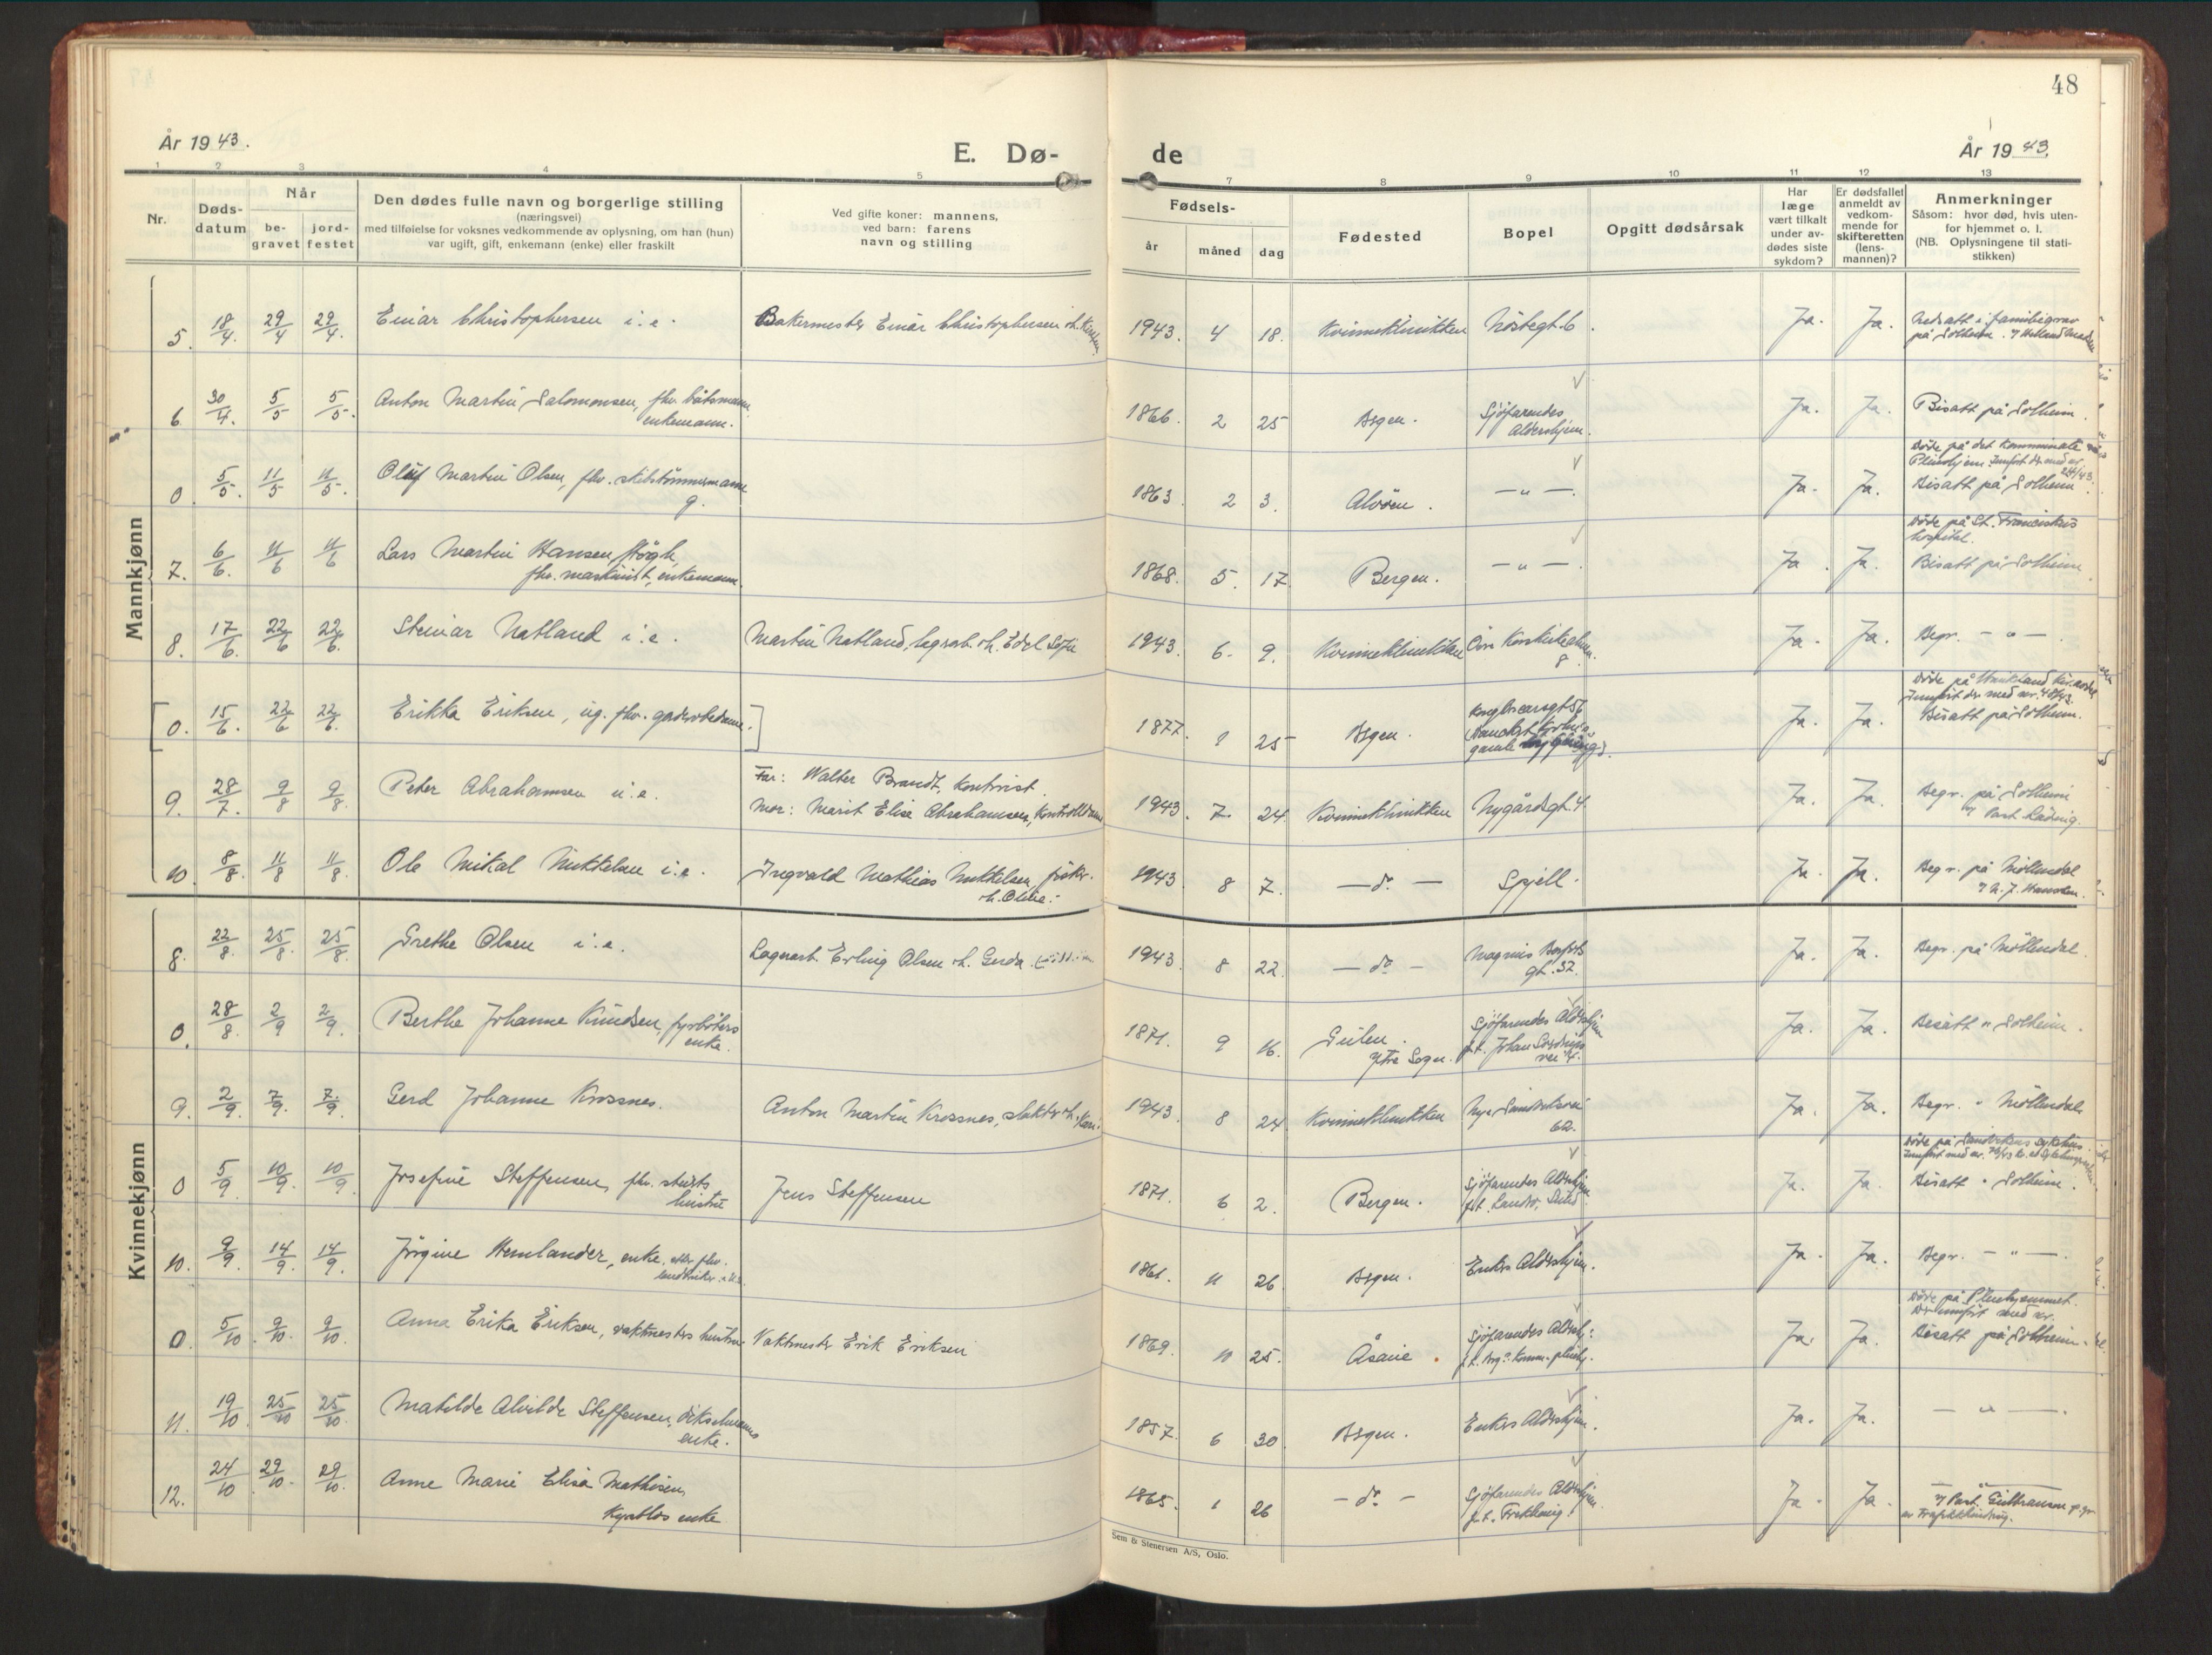 48
År 1943.
E. Dø-
de
År 1943.
1 2 3 4 5
7 8 9 10 11 12 13
Nr.
Døds-
datum
Når
be-
gravet
jord-
festet
Den dødes fulle navn og borgerlige stilling
(næringsvei)
med tilføielse for voksnes vedkommende av oplysning, om han (hun)
var ugift, gift, enkemann (enke) eller fraskilt
Ved gifte koner: mannens,
ved barn: farens
navn og stilling
Fødsels-
år
måned
dag
Fødested
Bopel
Opgitt dødsårsak
Har
læge
vært tilkalt
under av-
dødes siste
sykdom?
Er dødsfallet
anmeldt av
vedkom-
mende for
skifteretten
(lens-
mannen)?
Anmerkninger
Såsom: hvor død, hvis uten-
for hjemmet o. l.
(NB. Oplysningene til stati-
stikken)
Mannkjønn
5. 18/4. 29/4 29/4. Einar Christophersen i.e. Bakermester Einar Christophersen 1943. 4 18. Kvinneklinikken Nöstegt. 6. Ja. Ja. Nedsatt i familiegrav
på Solheim.
6 30/4. 5/5 5/5. Anton Martin Salomonsen, fhv. båtsmann 1866. 2 25 Bgen. Sjöfarendes Ja. Ja. Bisatt på Solheim.
enkemann. Aldershjem.
Döde på det kommunale
Pleiehjem.
0. 5/5. 11/5 11/5. Oluf Martin Olsen, fhv. skibstömmermann 1863. 2 3. Alvöen. — " —. Ja. Ja. Bisatt på Solheim.
g.
Döde på St. Franciskus
hospital.
7. 6/6. 11/6 11/6 Lars Martin Hansen Högh, 1868. 5. 17 Bergen. — " —. Ja. Ja. Bisatt på Solheim
fhv. maskinist, enkemann.
8. 17/6. 22/6 22/6. Steinar Natland i.e. Martin Natland, 1943. 6. 9. Kvinneklinikken 8. Ja. Ja. Begr. — " —.
Döde på Haukland
[0. 15/6. 22/6 22/6. Erikka Eriksen, ug. fhv. ] 1877. 1 25 Bgen. Ja. Ja. Bisatt på Solheim.
9. 28/7. 9/8 9/8. Peter Abrahamsen u.e. Far: Walter Brandt, kontorist. 1943. 7. 24. Kvinneklinikken Nygårdsgt. 4. Ja. Ja. Begr. på Solheim
Mor: Marit Elise Abrahamsen,
10. 8/8. 11/8 11/8. Ole Mikal Mikkelsen i.e. Ingvald Mathias Mikkelsen, fisker. 1943. 8 7. — do — Spjell. Ja. Ja. Begr. på Möllendal
Kvinnekjønn
8. 22/8. 25/8. 25/8. Grethe Olsen i.e. Lagerarb. Erling Olsen o.h. Gerda 1943. 8 22. — do — Magnus Barfots Ja. Ja. Begr. på Möllendal.
gt. 32.
0. 28/8. 2/9 2/9. Berthe Johanne Knudsen, fyrböters 1871. 9 16. Gulen. Sjöfarendes Aldershjem Ja. Ja. Bisatt " Solheim.
enke. Ytre Sogn.
9. 2/9. 7/9. 7/9. Gerd Johanne Krossnes. Anton Martin Krossnes, 1943. 8 24 Kvinneklinikken Nye Sandviksvei Ja. Ja. Begr. " Möllendal.
62.
Döde på Sandvikens sykehus.
0 5/9 10/9. 10/9. Josefine Steffensen, fhv. Jens Steffensen 1871. 6 2. Bergen. Sjöfarendes Aldershjem Ja. Ja. Bisatt " Solheim.
hustru
10. 9/9. 14/9. 14/9. Jörgine Hemlander, enke 1861. 11 26 Bgen. Enkers Aldershjem. Ja. Ja. Begr. — " —.
Döde på Pleiehjemmet.
0. 5/10 9/10. 9/10. Anna Erika Eriksen, vaktmesters hustru Vaktmester Erik Eriksen 1869. 10 25. Åsane. Sjöfarendes Aldershj: Ja. Ja. Bisatt på Solheim
11. 19/10 25/10 25/10. Matilde Alvilde Steffensen, 1857. 6 30 Bgen. Enkers Aldershjem. Ja. Ja. — " —.
enke.
12. 24/10 29/10. 29/10. Anne Marie Elisa Mathisen, 1865. 1 26 — do — Sjöfarendes Aldershjem Ja. Ja. — " —
enke
Sem & Stenersen A/S, Oslo.